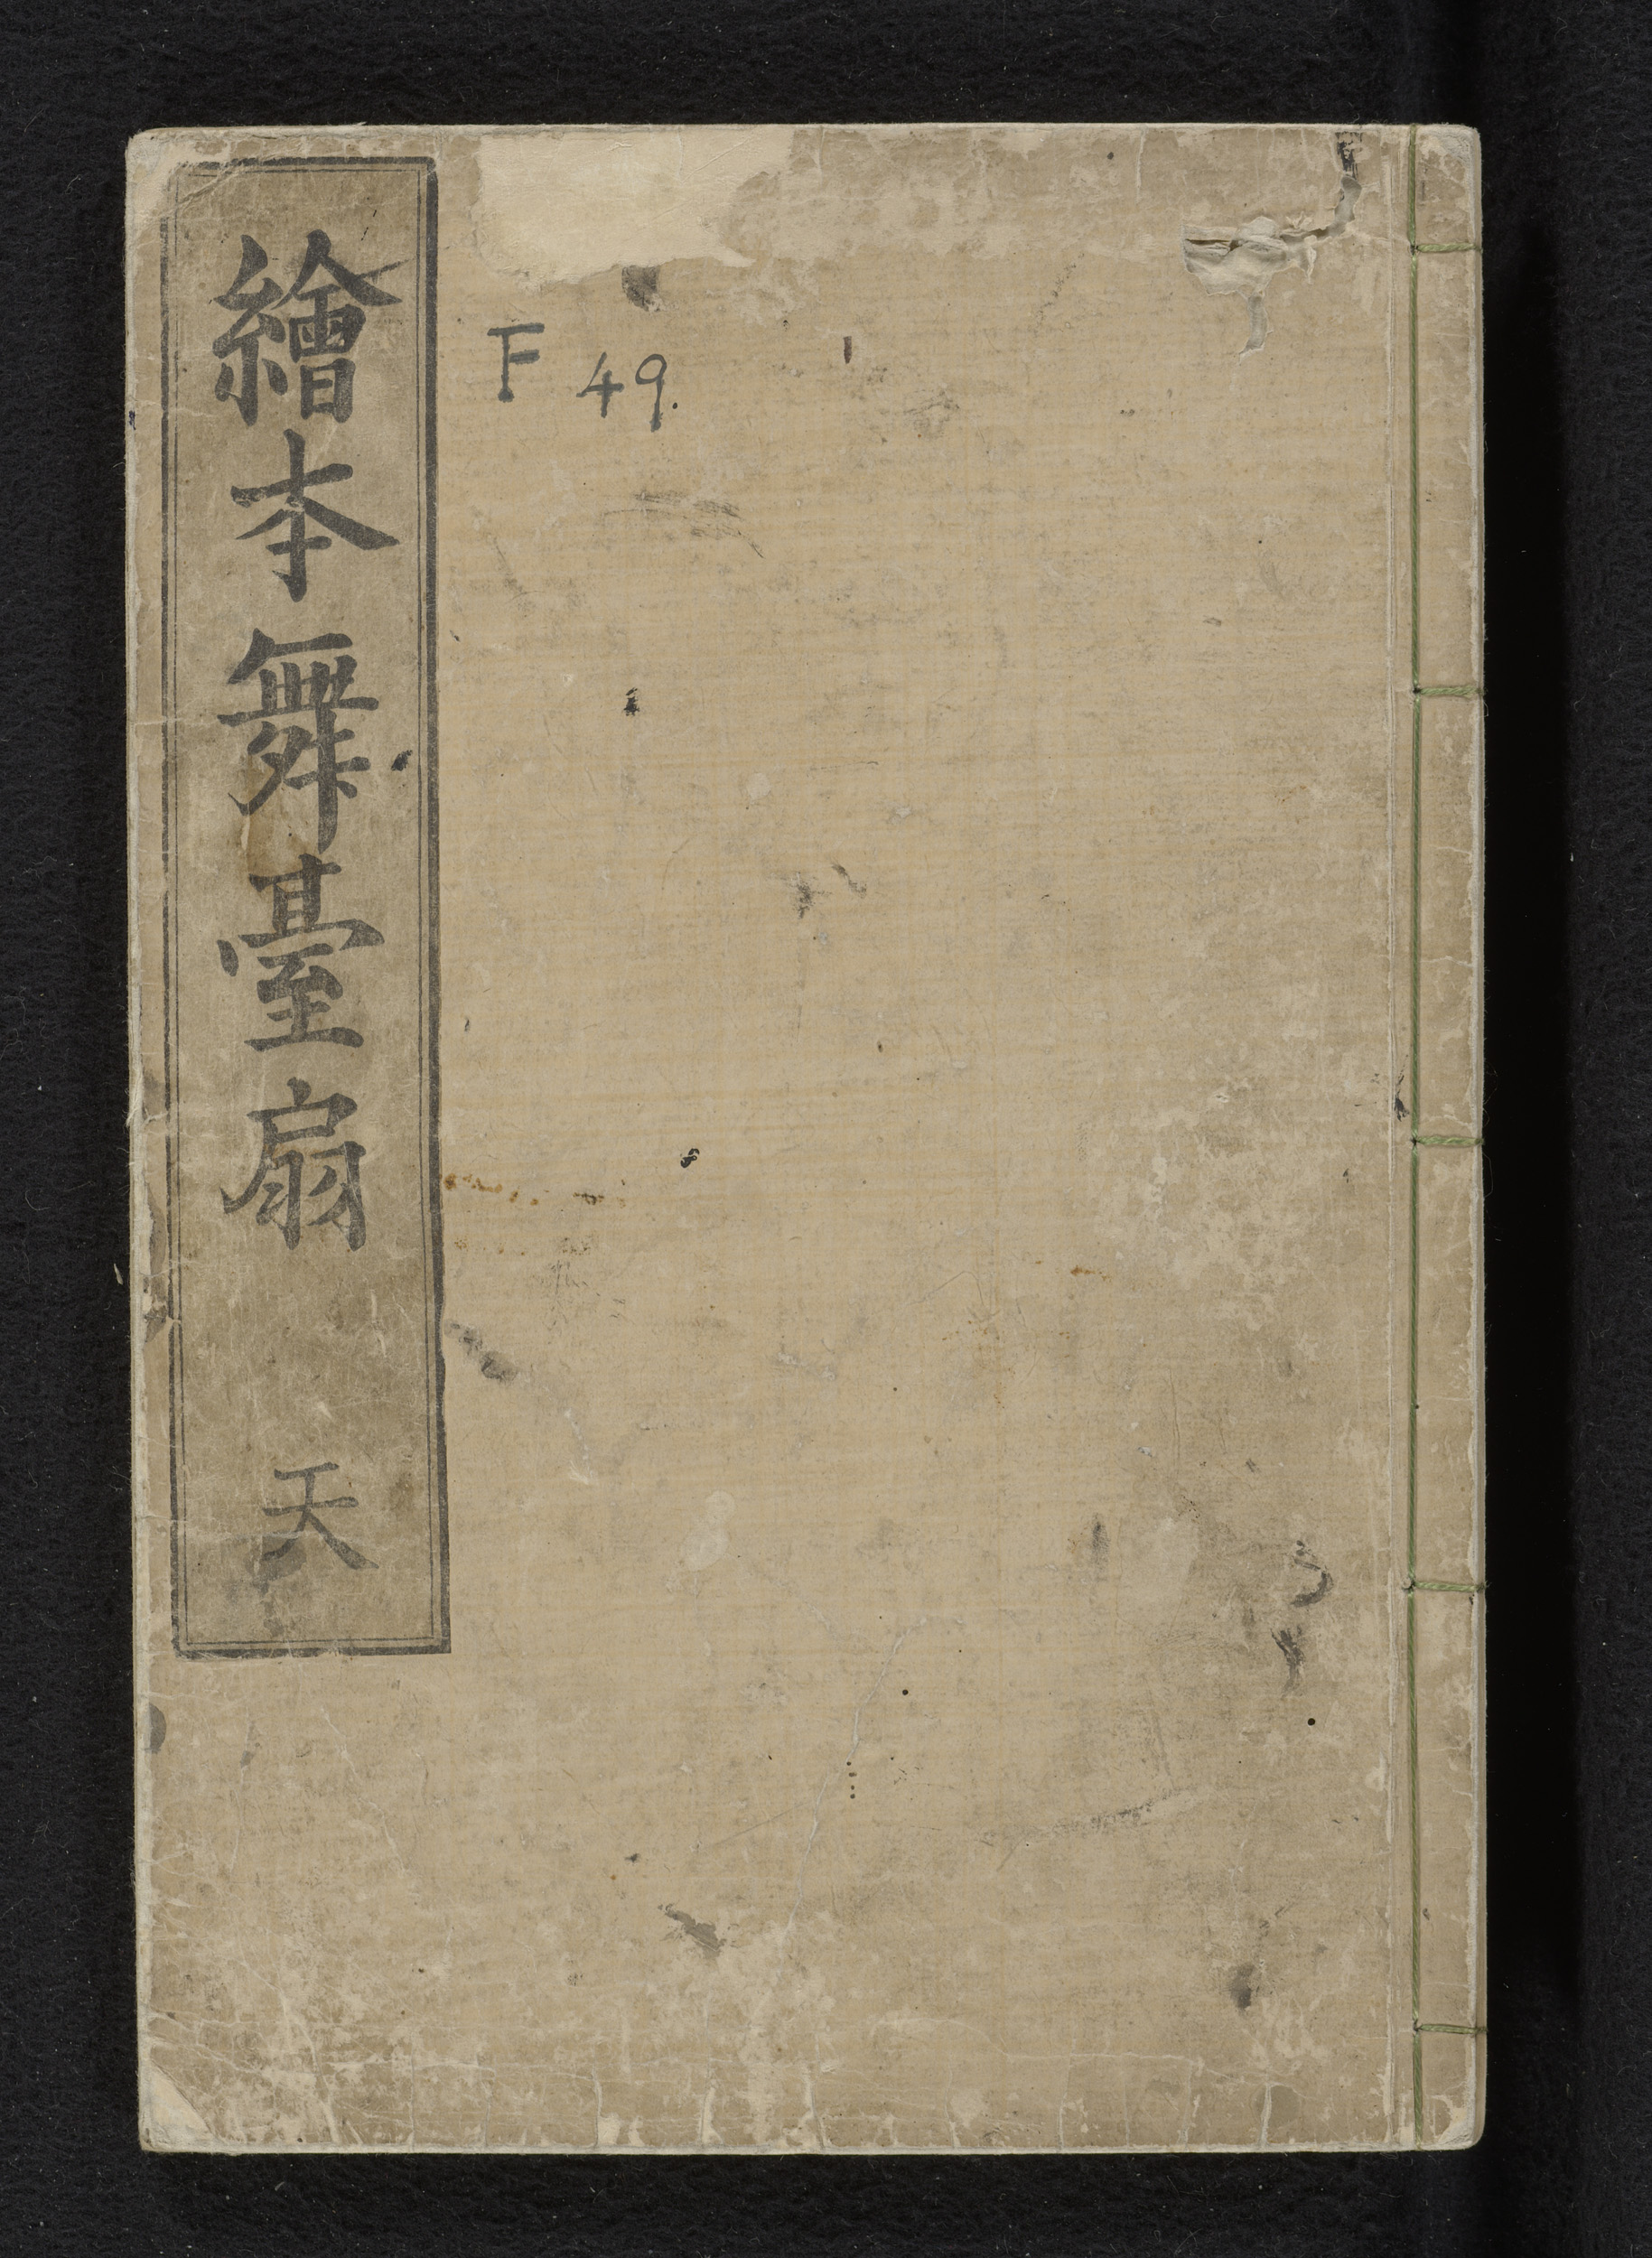 繪本舞臺扇 天
F 49.